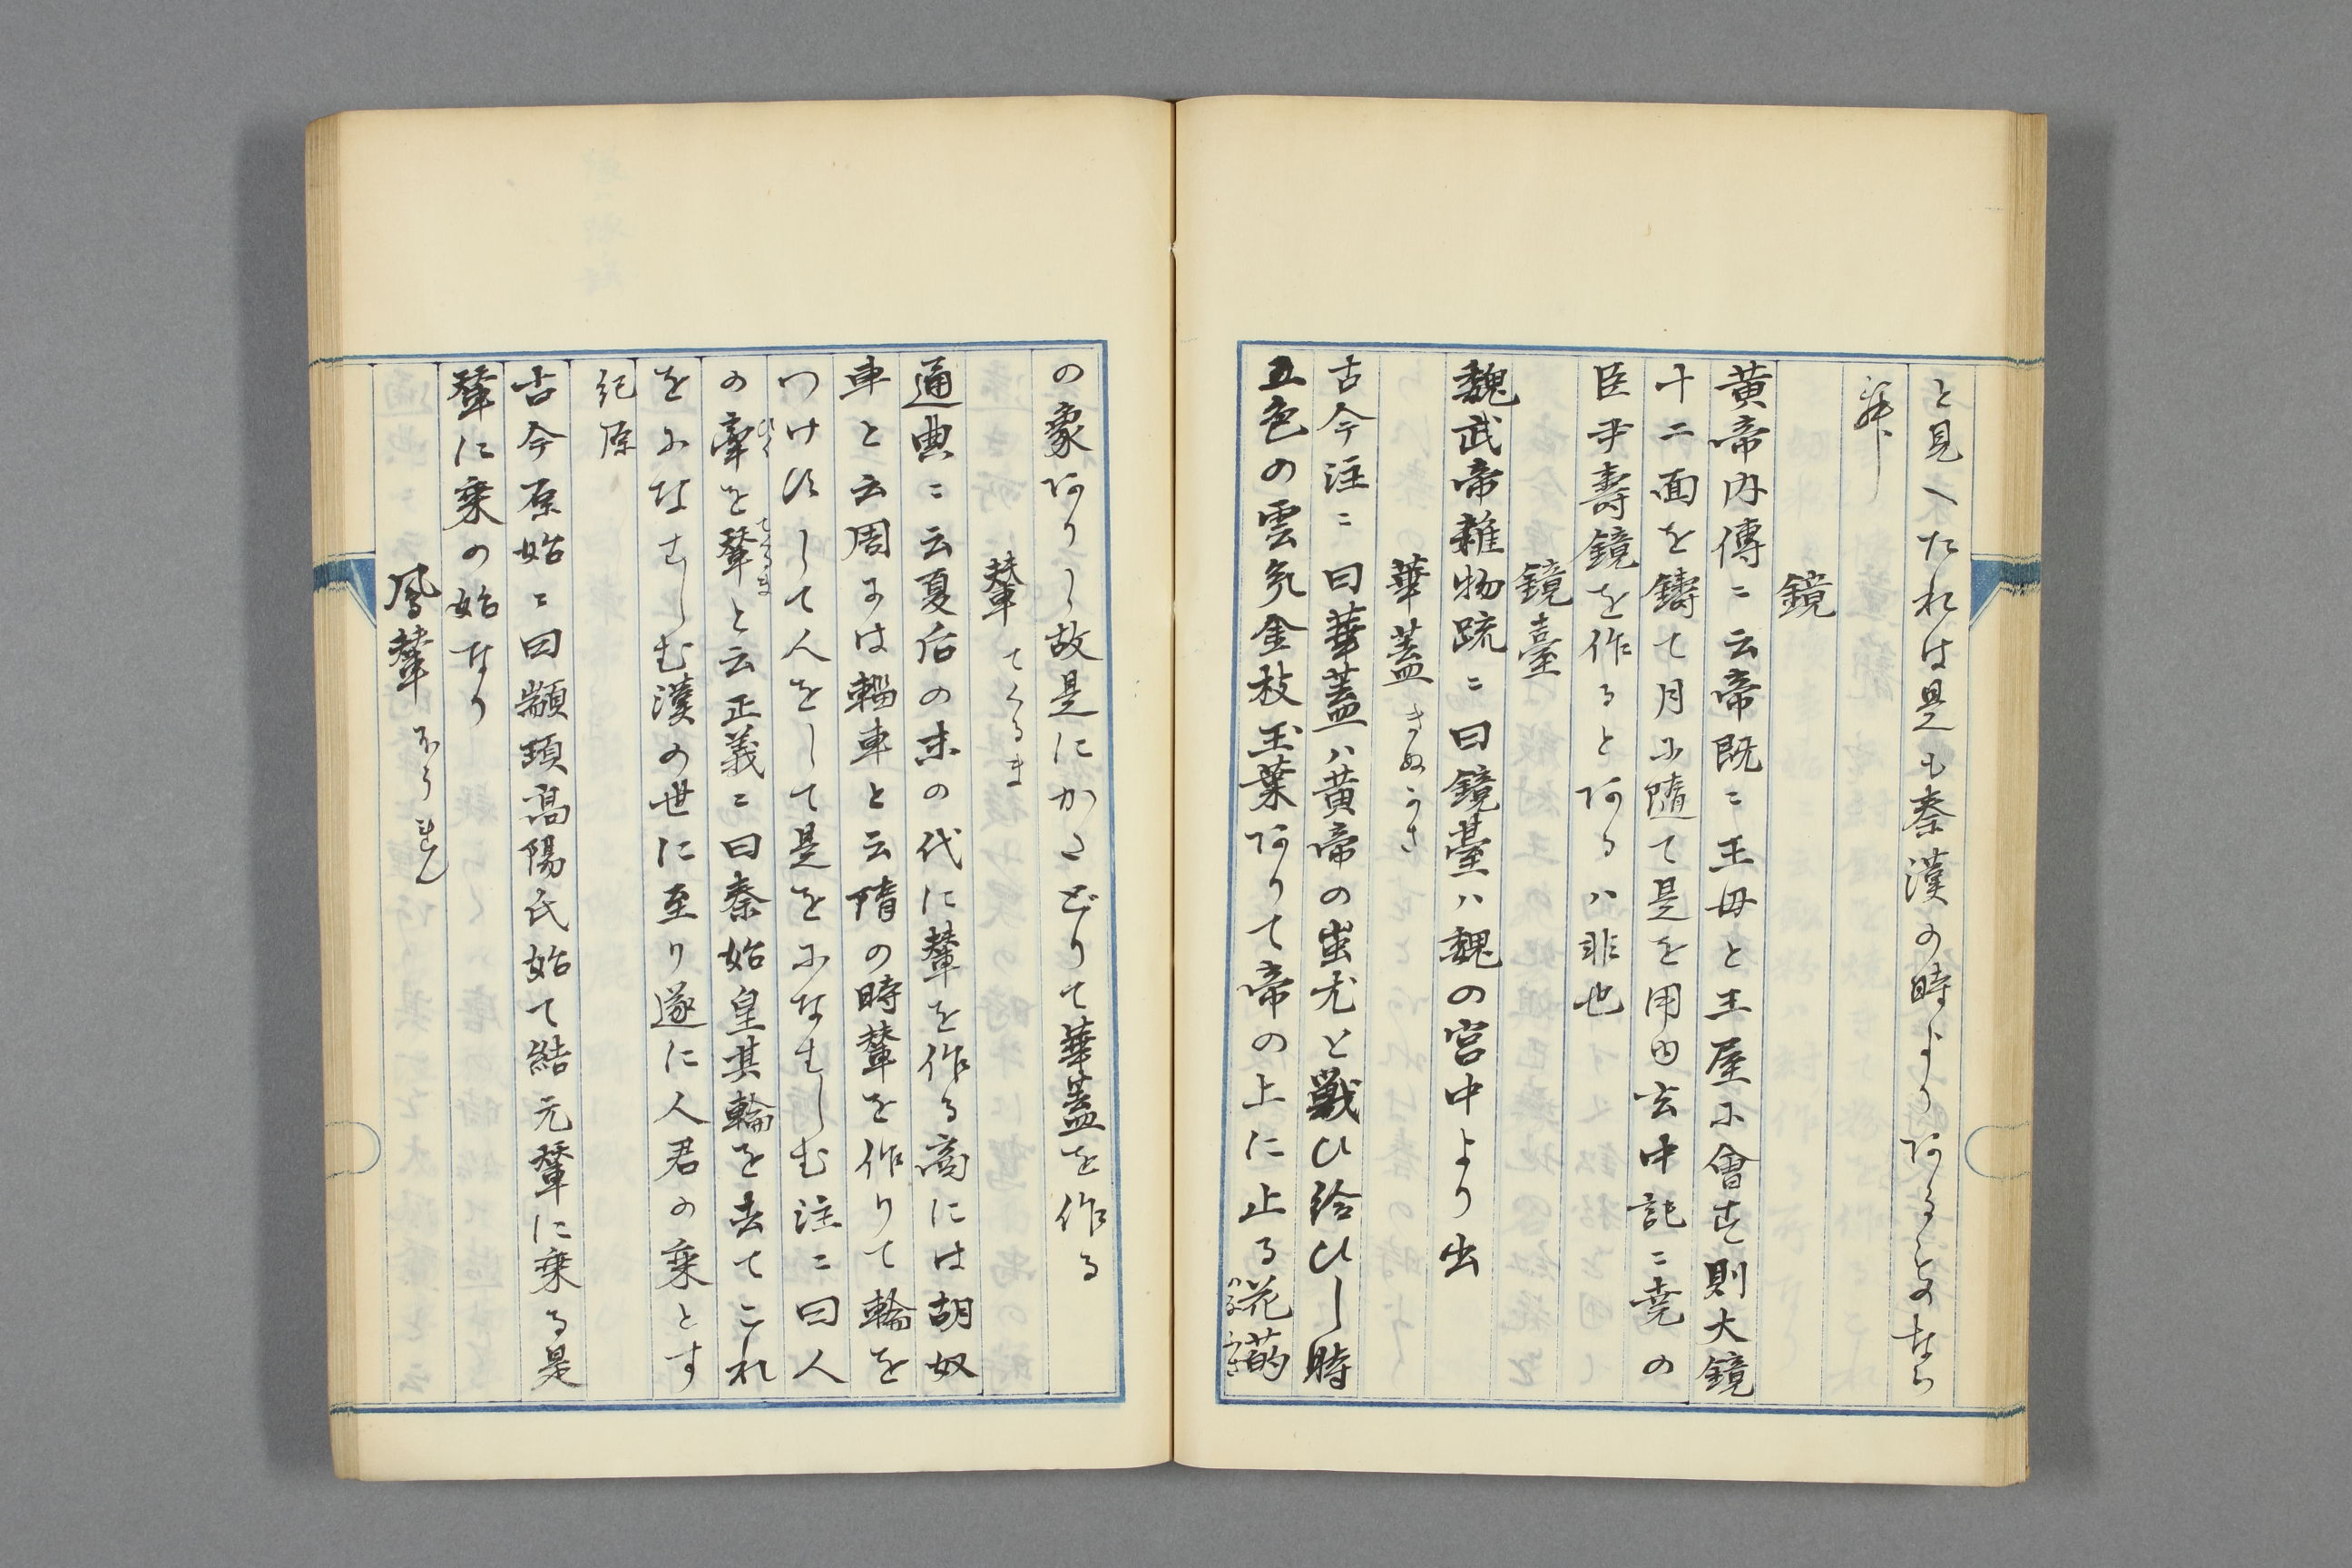 と見へたれは是も秦漢の時よりあるものなら
ん
鏡
黃帝内傳ニ云帝既ニ王母と王屋に會す則大鏡
十二面を鑄て月に隨て是を用由玄中記ニ堯の
臣尹壽鏡を作るとあるハ非也
鏡臺
魏武帝雜物疏ニ曰鏡臺ハ魏の宮中より出
華蓋 きぬかさ
古今注ニ曰華蓋ハ黃帝の蚩尤と戰ひ給ひし時
五色の雲気金枝玉葉ありて帝の上に止る花蘤
の象あり故是にかたどりて華蓋を作る
輦 てくるま
通典ニ云夏后の末の代に輦を作る商には胡奴
車と云周には輜車と云隋の時輦を作りて輪を
つけすして人をして是をになはしむ注ニ曰人
の牽を輦と云正義ニ曰秦始皇其輪を去てこれ
をになはしむ漢の世に至り遂に人君の乘とす
紀原
古今原始ニ曰顓頊高陽氏始て結元輦に乘る是
輦に乘の始なり
鳳輦 ほうれん